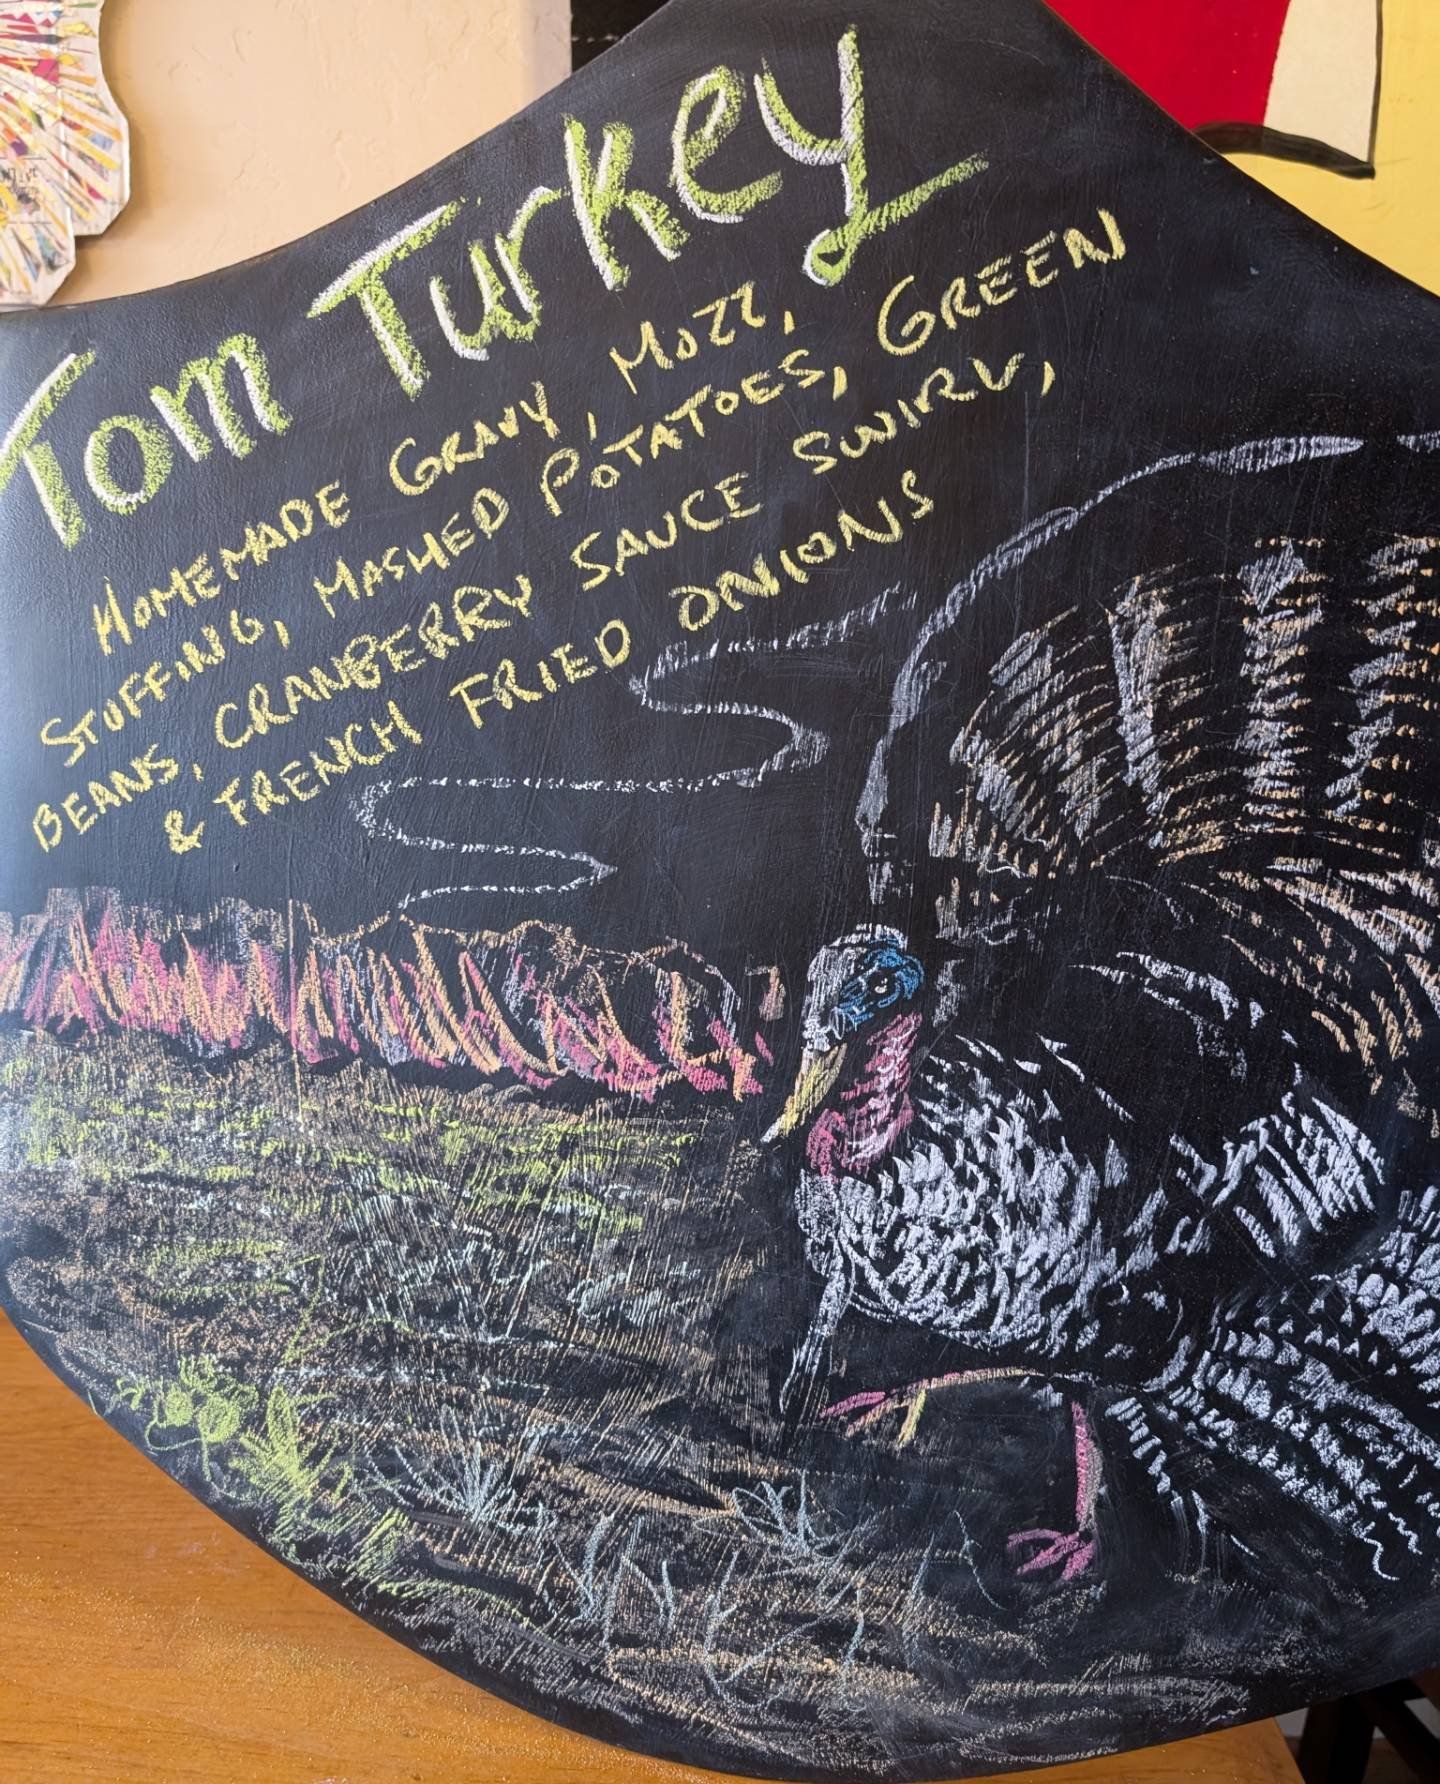 Tom Turkey
HOMEMADE GRAVY, MOZZ,
STUFFING, MASHED POTATOES, GREEN
BEANS, CRANBERRY SAUCE SWIRL,
& FRENCH FRIED ONIONS